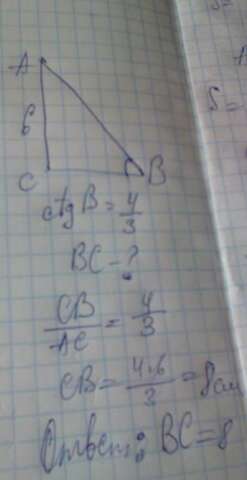 A
6
C B
ctg B = 4/3
BC - ?
CB/AC = 4/3
CB = 4·6/3 = 8см
Ответ: BC = 8